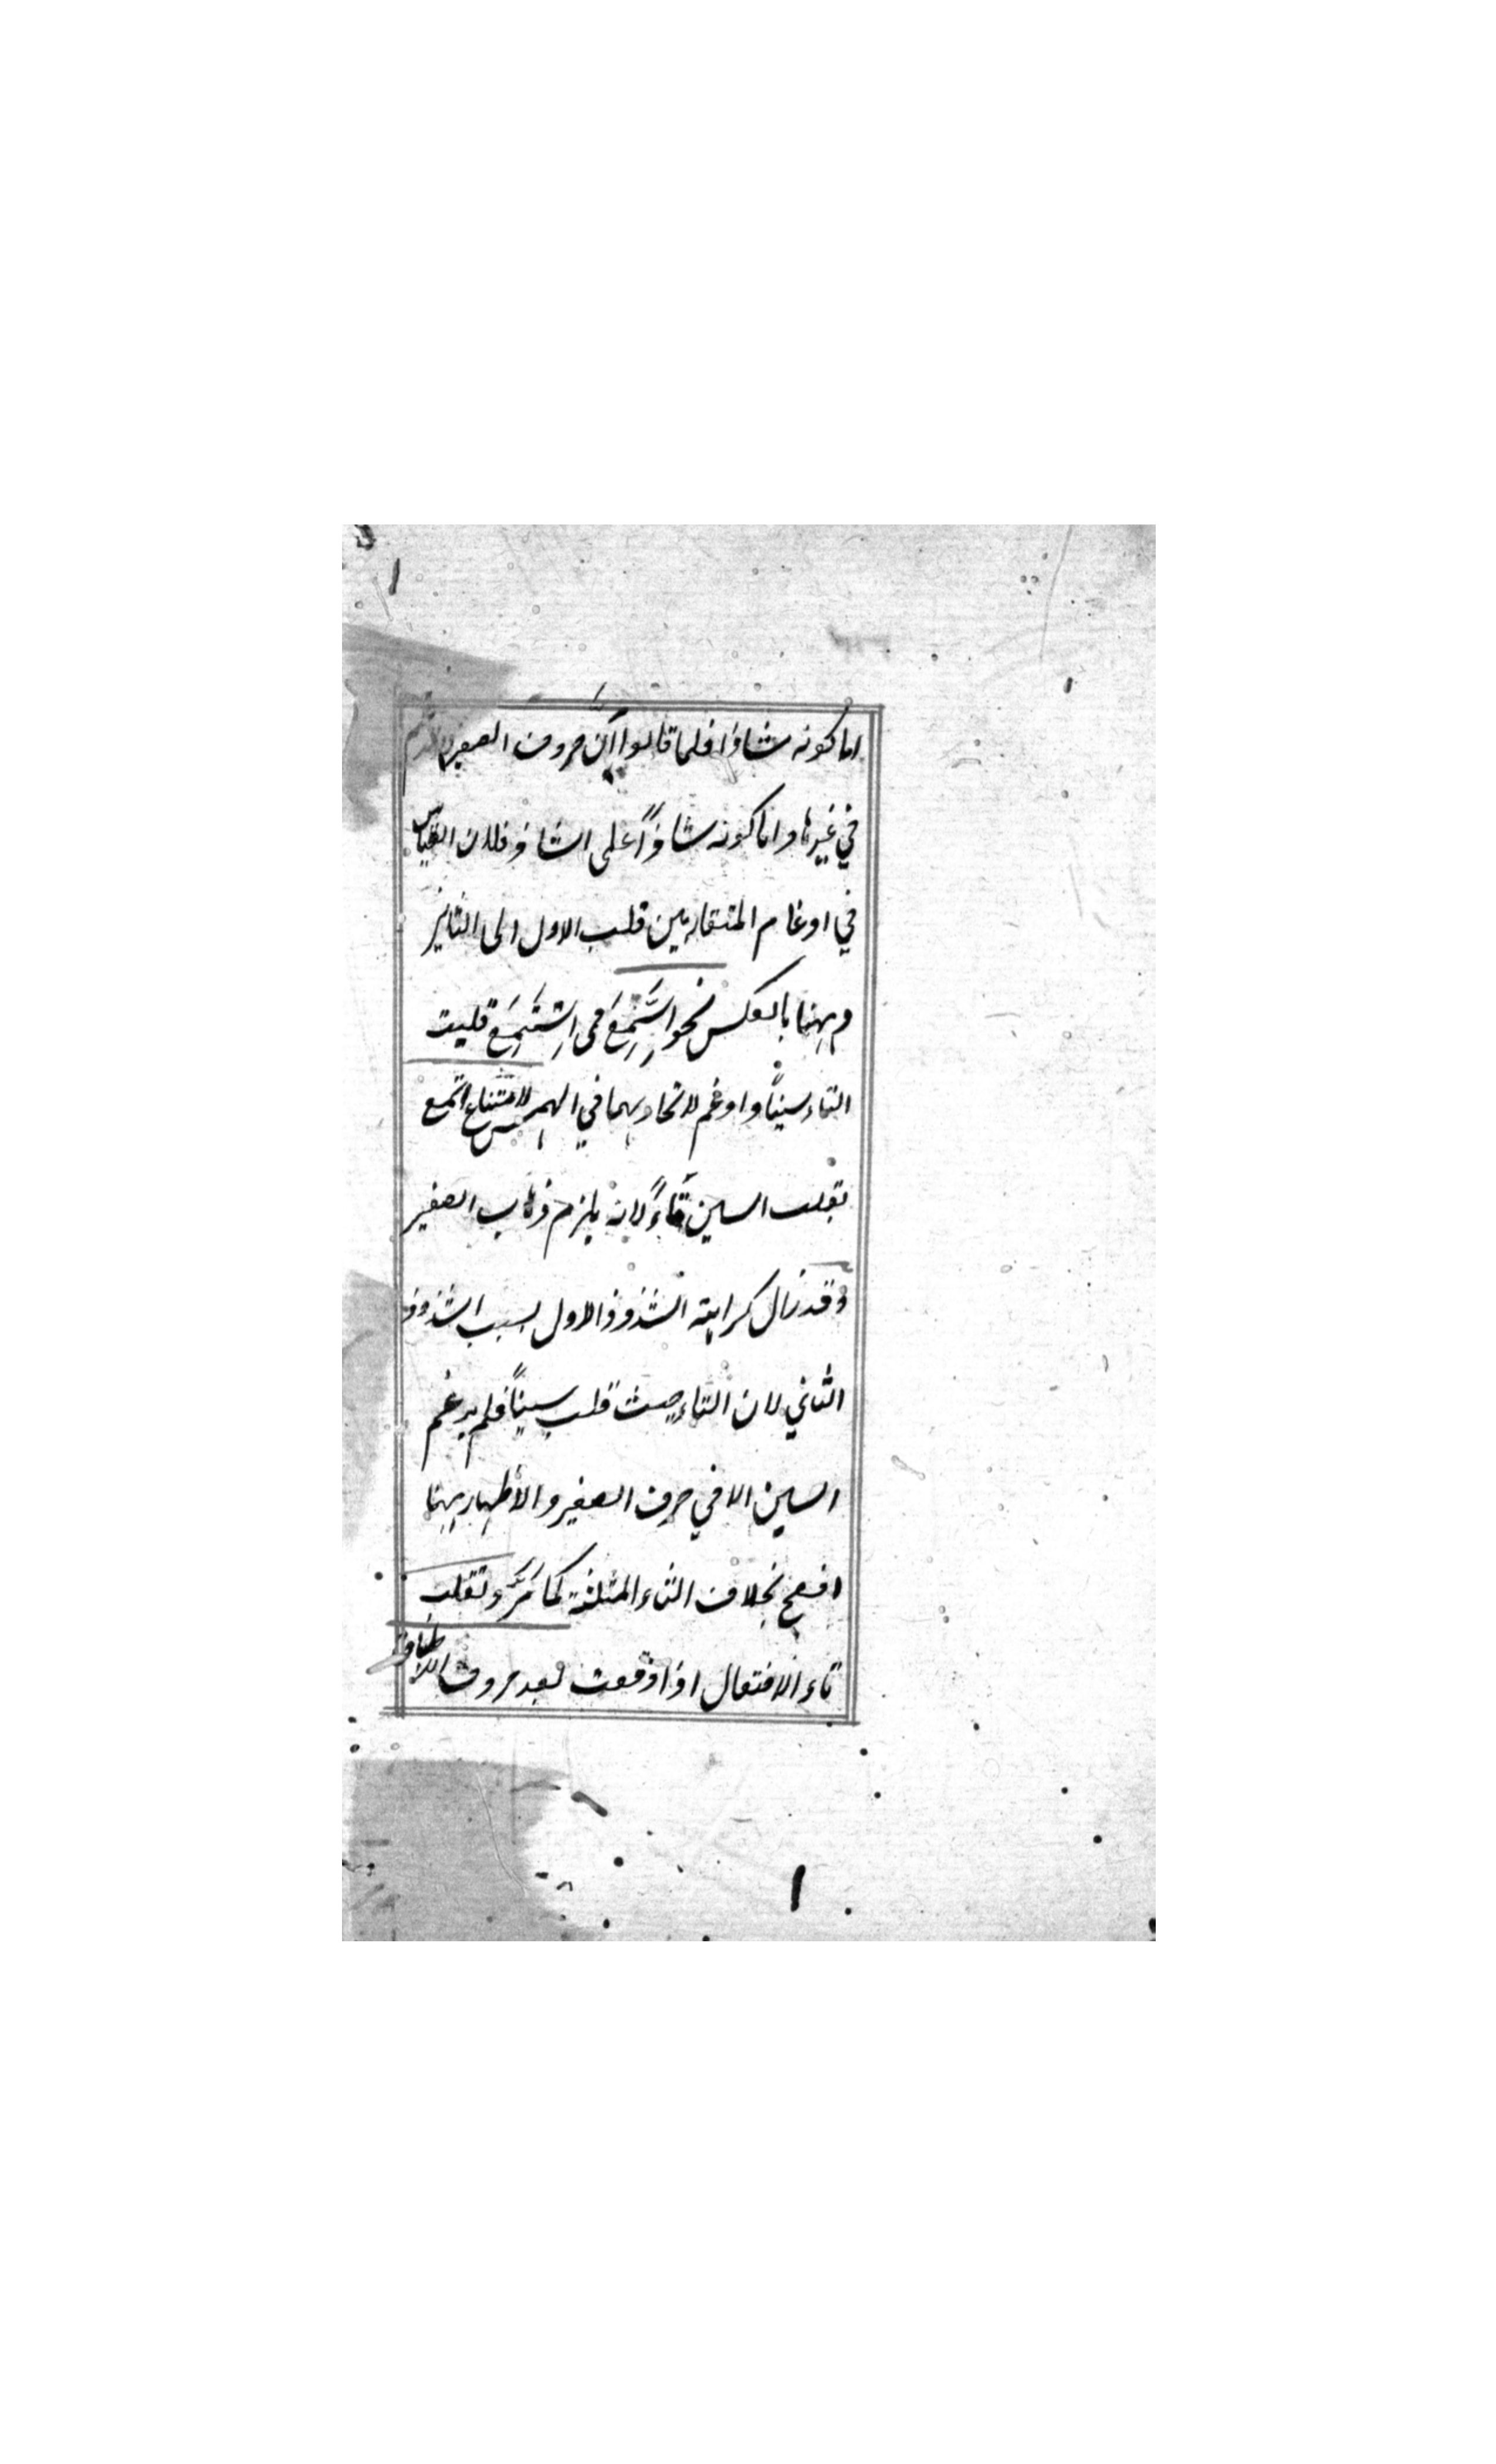 اما كونه شاذا فلما قالوا أنّ حروف الصفير
في غيرها واما كونه شاذاً على الشاذ فلان القياس
في ادغام المتقاربين قلب الاول الى الثاني
وههنا بالعكس نحو اسَّمِعَ في اِسْتَمِعَ قلبت
التاء سيناً وادغم لاتحادهما في الهمس لامتناع اتمع
بقلب السين تاءً لانه يلزم ذهاب الصفير
وقد زال كراهة الشذوذ الاول بسبب الشذوذ
الثاني لان التاء حيث قلب سيناً فلم يدغم
السين الا في حرف الصفير والاظهار ههنا
افصح بخلاف الثاء المثلثة كما مَرَّ وتقلب
تاء الافتعال اذا وقعت بعد حروف الاطباق